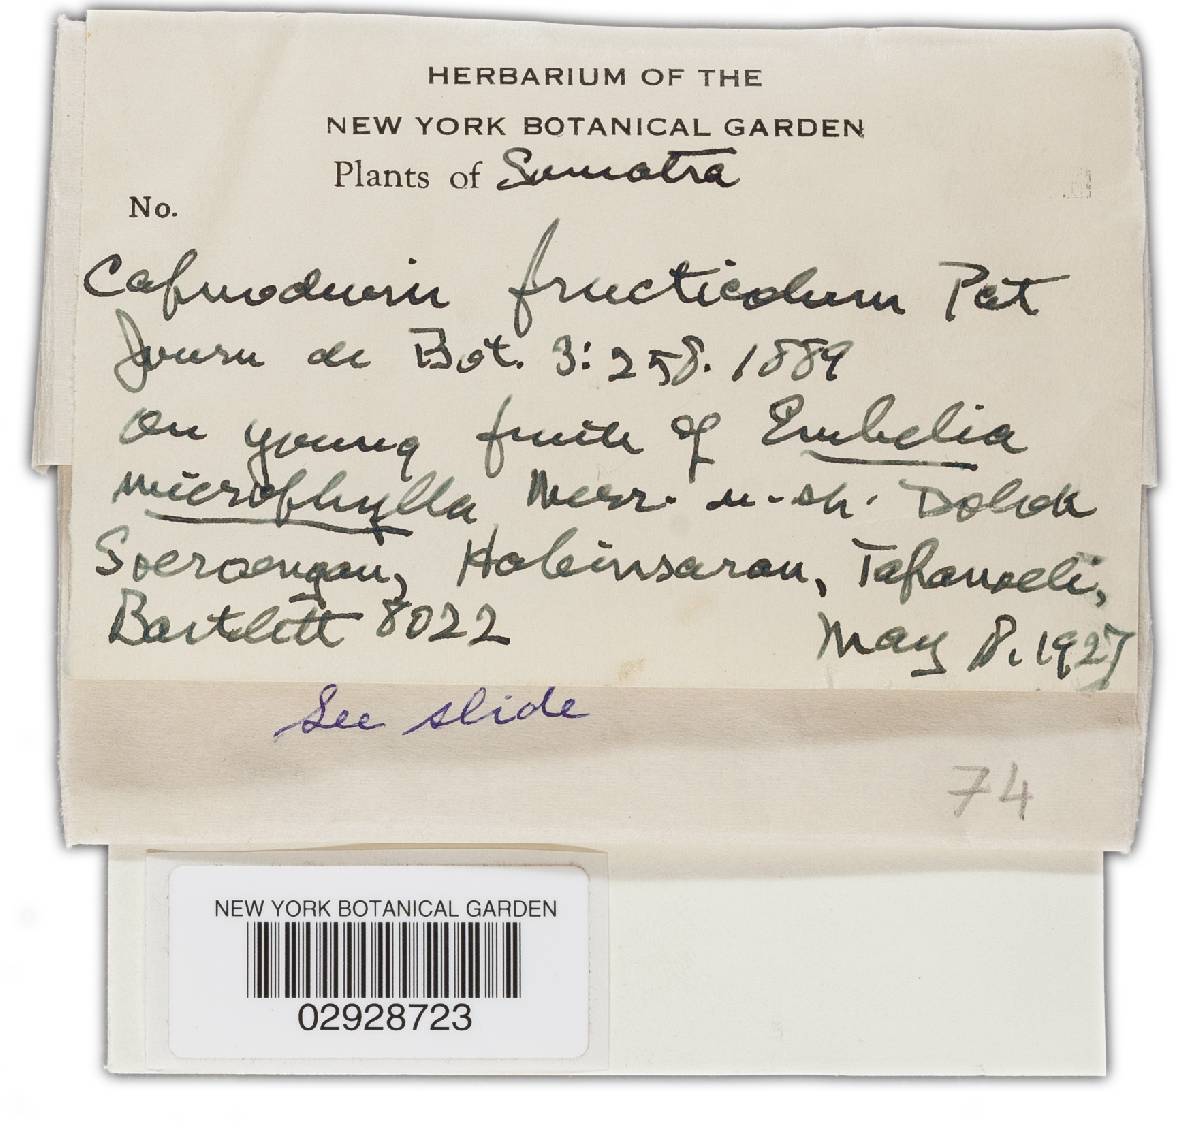 HERBARIUM OF THE
NEW YORK BOTANICAL GARDEN
Plants of Sumatra
No.
Capnodium fructicolum Pat
Journ de Bot. 3: 258. 1889
on young fruits of Embelia
microphylla Merr. Dolok
Soeroengan, Habinsaran, Tapanoeli,
Bartlett 8022 May 8, 1927
See slide
74
NEW YORK BOTANICAL GARDEN
02928723